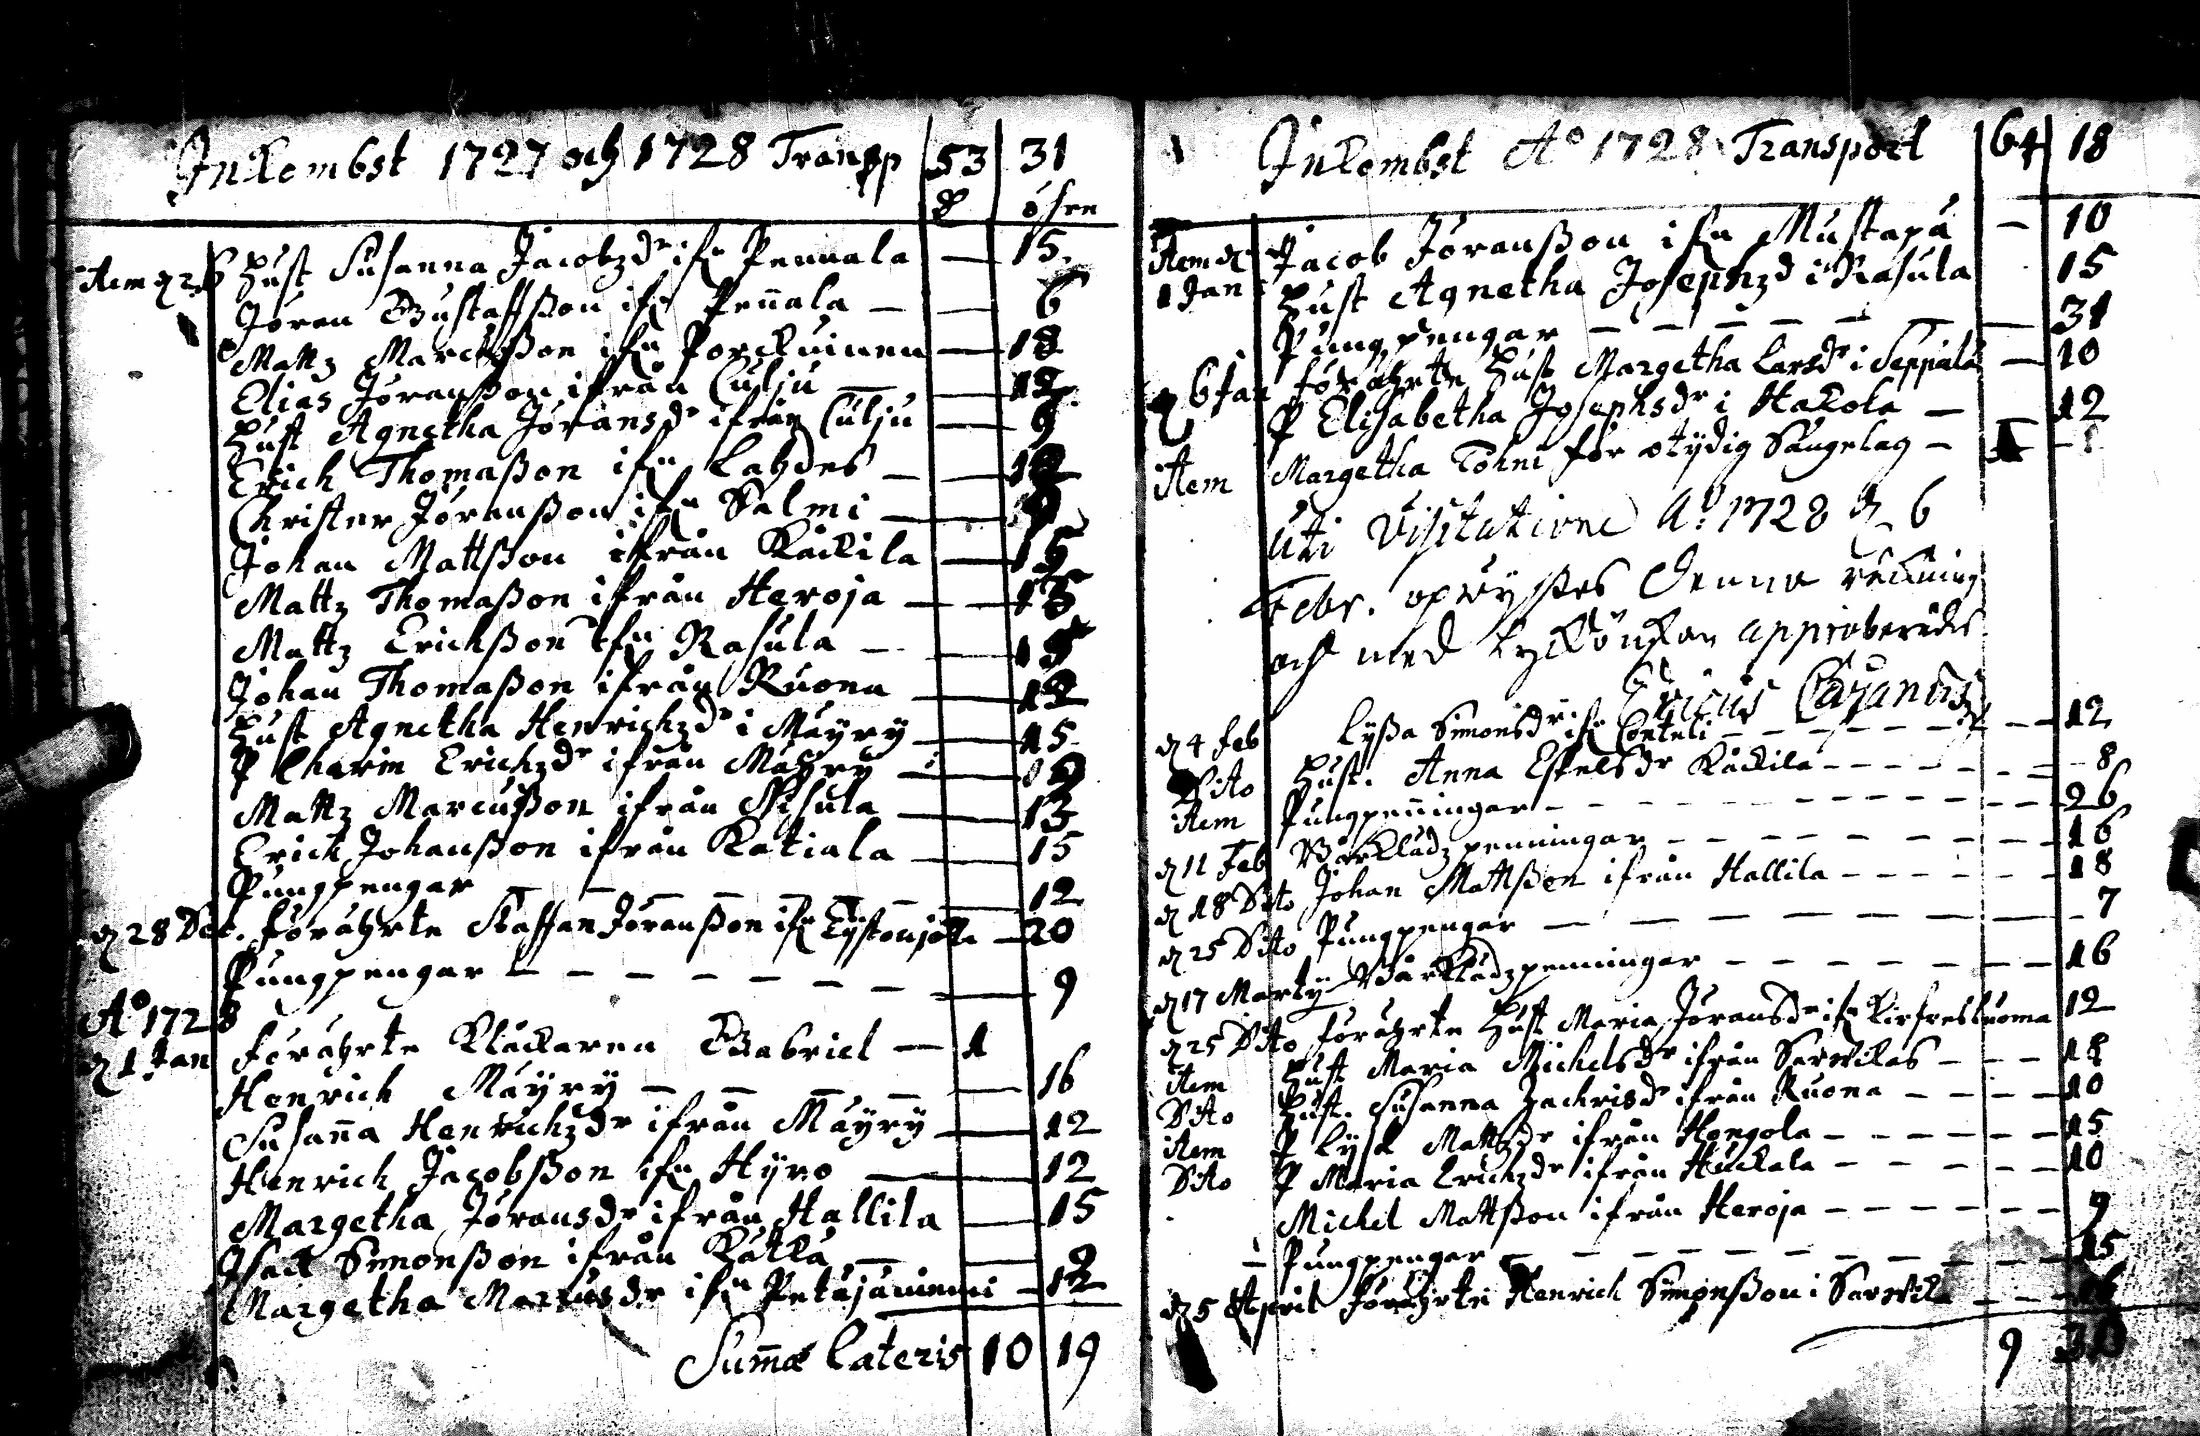 Inkombst 1727 och 1728 Transp 53 31
öhre
Item d 26 Hust Susanna Jacobzdr ifn Pennala — 15.
Jöran Gustaffßon ifn Peñala — 6
Mattz Marcußon ifn Porckuinen — 18
Elias Jöranßon ifrån Culju — 12
Hust Agnetha Jöransdr ifrån Culju — 9
Erich Thomaßon ifn Lahdes — 12
Christer Jöranßon ifn Salmi —
Johan Mattßon ifrån Kåckila — 15
Mattz Thomaßon ifrån Heroja — 15
Mattz Erichßon ifn Rasula — 15
Johan Thomaßon ifrån Ruona — 12
Hust Agnetha Henrichzdr i Mäyry — 15
P Charin Erichzdr ifrån Mäyry —
Mattz Marcußon ifrån Nisula — 13
Erich Johanßon ifrån Katiala — 15
Pungpengar — 12
d 28 Dec. förährte Staffan Jöranßon ifn — 20
Pungpengar — 9
Ao 1728
d 1 Jan förährte Klåckaren Gabriel — 1
Henrich Mäyry — 16
Susaña Henrichzdr ifrån Mäyry — 12
Henrich Jacobßon ifn Hyro — 12
Margetha Jöransdr ifrån Hallila — 15
Isack Simonßon ifrån Kätkä —
Margetha Marcusdr ifn Petäjäniemi — 12
Sum̃a Lateris 10 19
Inkombst Ao 1728 Transport 64 18
Item d Jacob Jöranßon ifn Mustapä — 10
1 Jan Hust Agnetha Josephzd i Rasula 15
Pungpengar — 31
d 6 Jan förährte Hust Margetha Larsdr i Seppälä — 10
P Elisabetha Josephsdr i Hakola — 12
Item Margetha Tohni för otydig Sängelag —
Uti Visitatione Ao 1728 d 6
Febr. opwyßes denna räkning
och med lyckönskan approberades.
Ericus Cajanus
d 4 Feb Lyßa Simonsdr ifn Conteli — 12
Dito Hust. Anna Eskelsdr Kåckila — 8
Item Pungpeñingar — 26
d 11 Feb Wårklädz penningar — 16
d 18 Dito Johan Mattßon ifrån Hallila — 18
d 25 Dito Pungpengar — 7
d 17 Martij Wårklädzpenningar — 16
d 25 Dito förährte Hust Maria Jöransdr ifn 12
Item Hust Maria Michelsdr ifrån Sarwikas — 18
Dito Hust. Susanna Zachrisdr ifrån Ruona — 10
Item P Lysa Mattzdr ifrån Hongola — 15
Dito P Maria Erichzdr ifrån Huckala — 10
Michel Mattßon ifrån Heroja — 9
Pungpengar — 15
d 5 April förährte Henrich Simonßon i Sarwika — 16
9 30